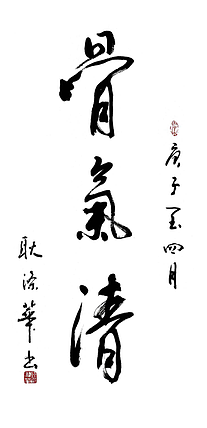 骨氣清
庚子年四月
耿涤華书